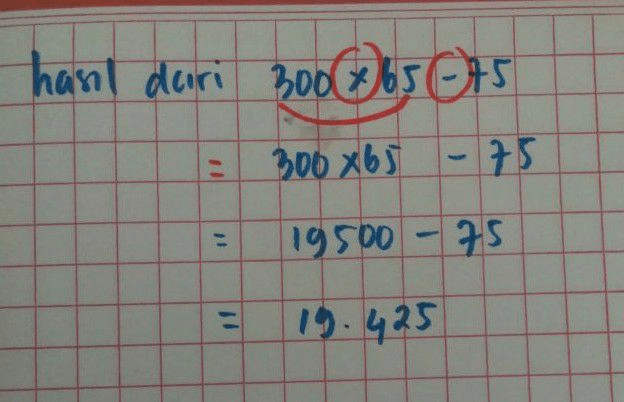 hasil dari 300 × 65 - 75
= 300 × 65 - 75
= 19500 - 75
= 19.425